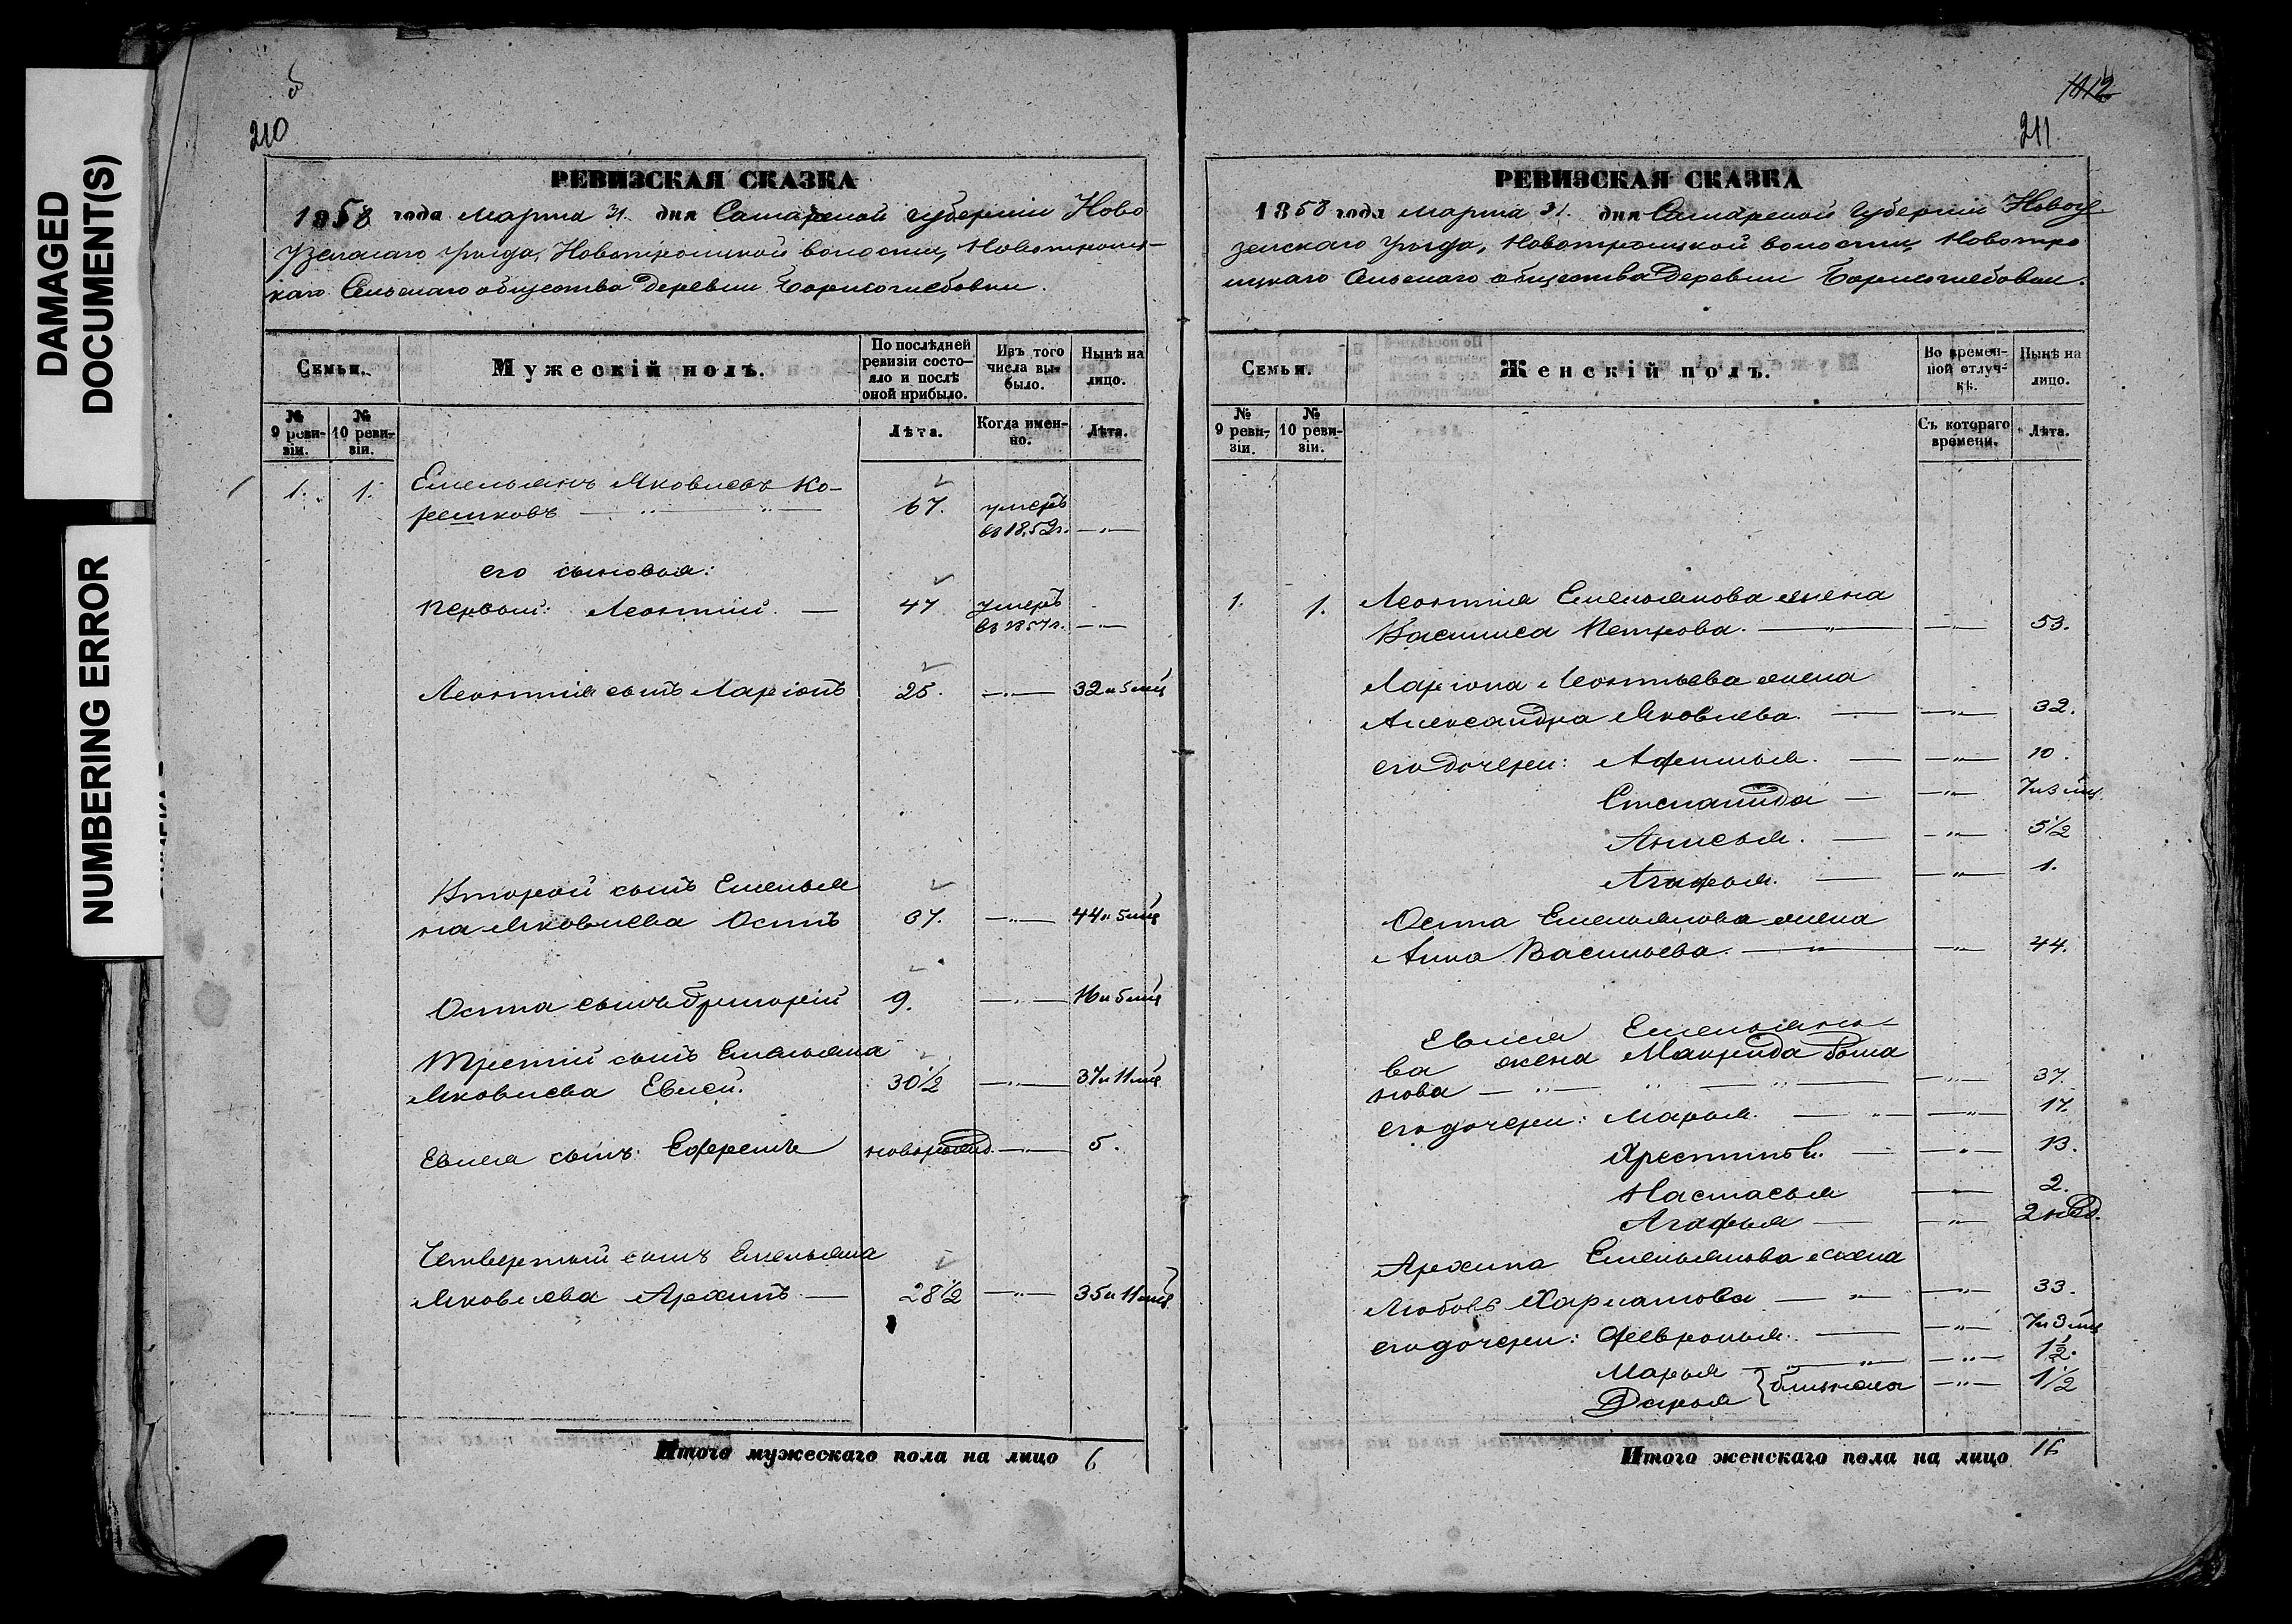 DAMAGED
DOCUMENT(S)
NUMBERING ERROR
210
РЕВИЗСКАЯ СКАЗКА
1858 года Марта 31 дня Самарской губернiи Ново
узенскаго уѣзда, Новотроицкой волости, Новотроиц-
каго Сельскаго общества Деревни Борисоглебовки.
Семьи.
Мужескiй полъ.
По послѣдней
ревизiи состо-
яло и послѣ
оной прибыло.
Изъ того
числа вы-
было.
Нынѣ на
лицо.
№
9 реви-
зiи.
№
10 реви-
зiи.
Лѣта.
Когда имен-
но.
Лѣта.
1. 1. Емельянъ Яковлевъ Ко-
решковъ 67. умеръ
въ 1852г.
его сыновья:
первый: Леонтiй. 47 умеръ
въ 1857г.
Леонтiя сынъ Ларiонъ 25. 32 и 5 мц
Второй сынъ Емелья
на Яковлева Остъ 37. 44 и 5 мц
Оста сынъ Григорiй 9. 16 и 5 мц
Третiй сынъ Емельяна
Яковлева Евлей. 30½ 37 и 11 мц
Евлея сынъ: Ефремъ новорожд. 5.
Четвертый сынъ Емельяна
Яковлева Архипъ 28½ 35 и 11 мц
Итого мужескаго пола на лицо 6
211
РЕВИЗСКАЯ СКАЗКА
1858 года марта 31. дня Самарской Губернiи Новоу
зенскаго уѣзда, Новотроицкой волости, Новотро
ицкаго Сельскаго общества Деревни Борисоглебовки.
Семьи.
Женскiй полъ.
Во времен-
ной отлуч-
кѣ.
Нынѣ на
лицо.
№
9 реви-
зiи.
№
10 реви-
зiи.
Съ котораго
времени.
Лѣта.
1. 1. Леонтiя Емельянова жена
Василиса Петрова. 53.
Ларiона Леонтьева жена
Александра Яковлева. 32.
его дочери: Афимья. 10.
Степанида 7 и 3 мц.
Анисья. 5½
Агафья. 1.
Оста Емельянова жена
Анна Васильева. 44.
Евлея Емельяно-
ва жена Макрида Рома
нова 37.
его дочери: Марья. 17.
Хрестинья. 13.
Настасья 2.
Агафья 2 нед.
Архипа Емельянова жена
Любовь Харламова 33.
его дочери: Февронья. 7 и 3 мц
Марья 1½.
Дарья } близнецы 1½
Итого женскаго пола на лицо 16